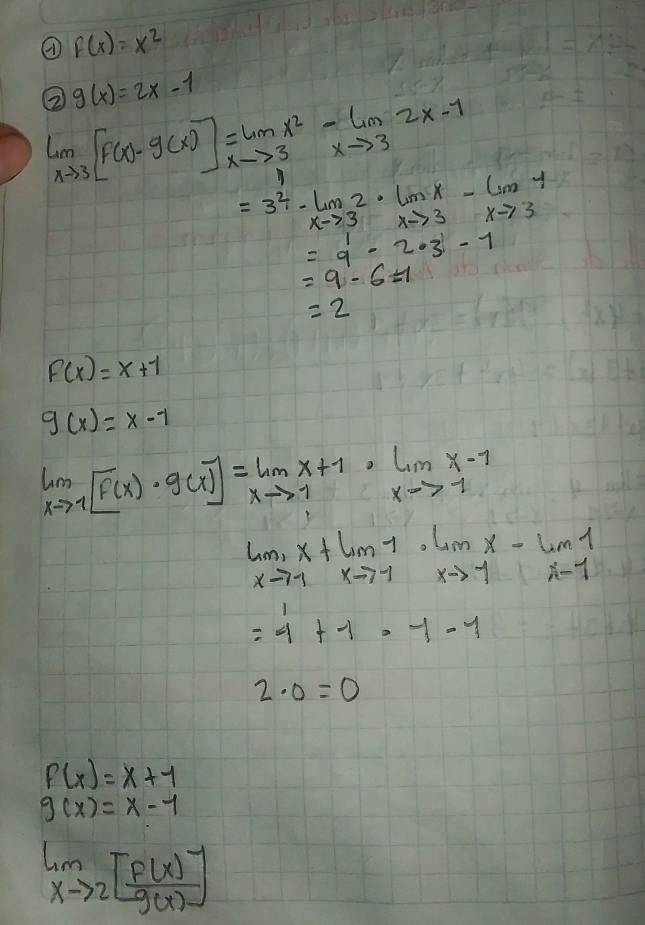 ① F(x) = x²
② g(x) = 2x - 1
lim x→3 [F(x) - g(x)] = lim x→3 x² - lim x→3 2x - 1
= 3² - lim x→3 2 · lim x→3 x - lim x→3 1
= 9 - 2·3 - 1
= 9 - 6 + 1
= 2
F(x) = x+1
g(x) = x - 1
lim x→1 [F(x) · g(x)] = lim x→1 x+1 · lim x→1 x - 1
lim x→1 x + lim x→1 1 · lim x→1 x - lim x-1 1
= 1 + 1 · 1 - 1
2·0 = 0
F(x) = x + 1
g(x) = x - 1
lim x→2 [F(x)/g(x)]